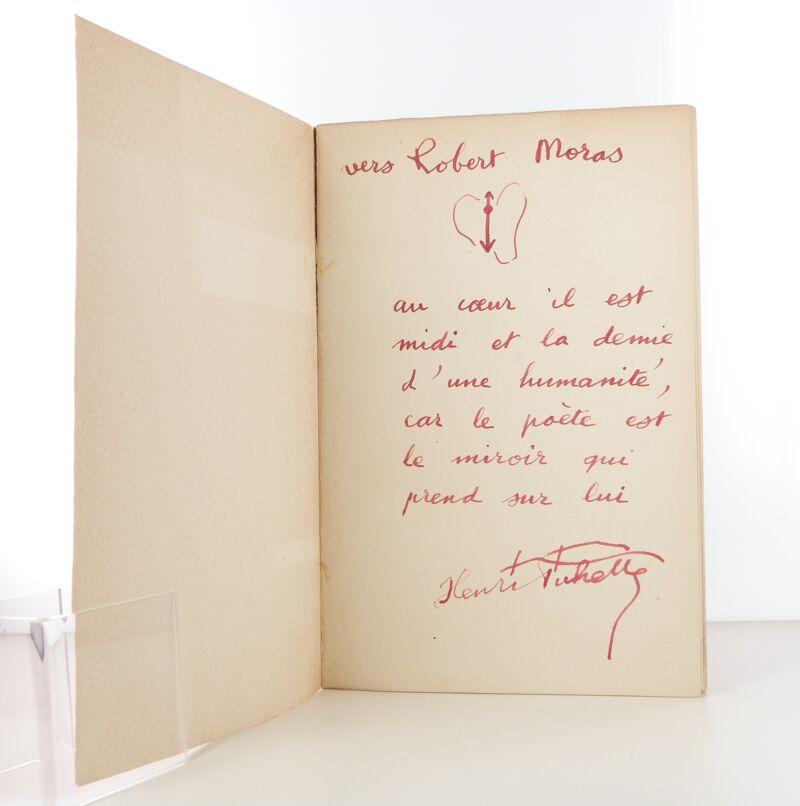 vers Robert Moras
au cœur il est
midi et la demie
d'une humanité,
car le poète est
le miroir qui
prend sur lui
Henri Pichette